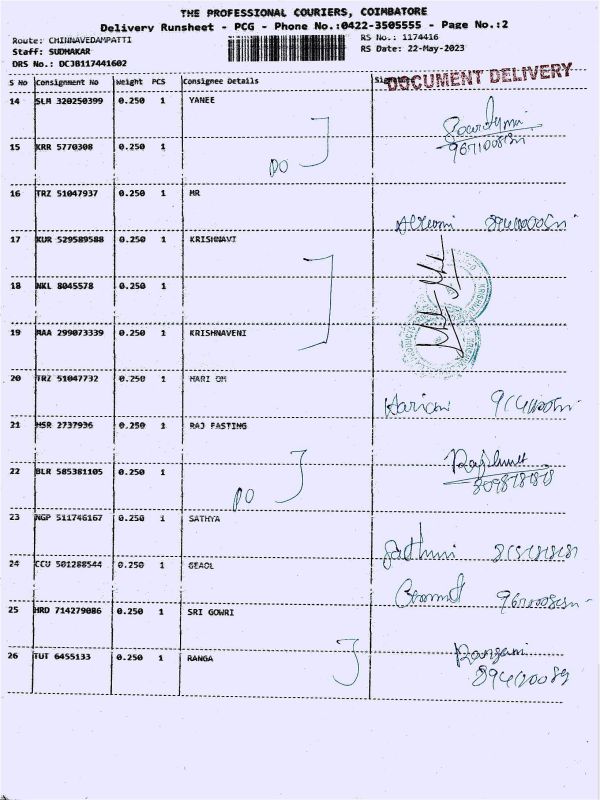 THE PROFESSIONAL COURIERS, COIMBATORE
Delivery Runsheet - PCG - Phone No.:0422-3505555 - Page No.:2
Route: CHINNAVEDAMPATTI
RS No.: 1174416
Staff: SUDHAKAR
RS Date: 22-May-2023
DRS No.: DCJB117441602
S No Consignment No Weight PCS Consignee Details Signature
DOCUMENT DELIVERY
14 SLM 320250399 0.250 1 YANEE
15 KRR 5770308 0.250 1
DO
16 TRZ 51047937 0.250 1 MR
17 KUR 529589588 0.250 1 KRISHNAVI
18 NKL 8045578 0.250 1
19 MAA 299073339 0.250 1 KRISHNAVENI
20 TRZ 51047732 0.250 1 HARI OM
21 HSR 2737936 0.250 1 RAJ FASTING
22 BLR 585381105 0.250 1
DO
23 NGP 511746167 0.250 1 SATHYA
24 CCU 501288544 0.250 1 GEAOL
25 HRD 714279086 0.250 1 SRI GOWRI
26 TUT 6455133 0.250 1 RANGA